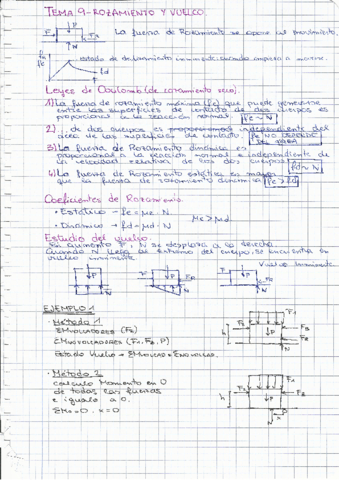 TEMA 9- ROZAMIENTO Y VUELCO.
La fuerza de Rozamiento se opone al movimiento.
estado de deslizamiento inminente cuando empieza a moverse.
Leyes de Coulomb (de rozamiento seco)
1) La fuerza de rozamiento máxima (fe) que puede generarse
entre las superficies de contacto de dos cuerpos es
proporcional a la reacción normal. fe ~ N
2) de dos cuerpos es proporcional independiente del
área de las superficies de contacto. fe NO DEPENDE
DE ÁREA
3) La fuerza de Rozamiento dinámica es
proporcional a la reacción normal e independiente de
la velocidad relativa de los dos cuerpos. fd ~ N
4) La fuerza de Rozamiento estática es mayor
que la fuerza de rozamiento dinámica. fe > fd
Coeficientes de Rozamiento.
· Estático → fe = μe · N
· Dinámico → fd = μd · N
μe > μd
Estudio del vuelco.
Si aumento F, N se desplaza a la derecha
Cuando N llega al extremo del cuerpo, se encuentra en
vuelco inminente
Vuelco Inminente
EJEMPLO 1
· Método 1.
ΣM VOLCADORES (F3)
ΣM NO VOLCADORES (F1, F2, P)
Estado Vuelco → ΣM VOLCAD = ΣM NO VOLCAD.
· Método 2
Calculo Momento en O
de todas las fuerzas
e igualo a 0.
ΣMo = 0 · x = 0